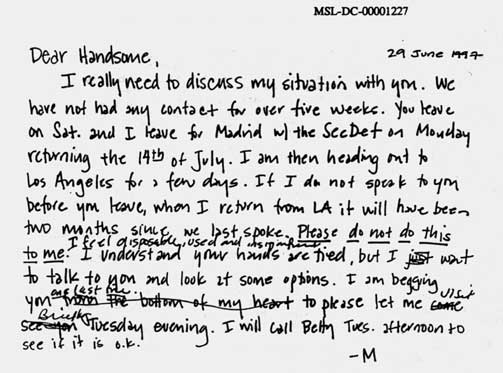 MSL-DC-00001227
Dear Handsome, 29 June 1997
I really need to discuss my situation with you. We
have not had any contact for over five weeks. You leave
on Sat. and I leave for Madrid w/ the SecDef on Monday
returning the 14th of July. I am then heading out to
Los Angeles for a few days. If I do not speak to you
before you leave, when I return from LA it will have been
two months since we last spoke. Please do not do this
I feel disposable, used and insignificant.
to me. I understand your hands are tied, but I just want
to talk to you and look at some options. I am begging
one last time visit
you from the bottom of my heart to please let me come
Briefly
see you Tuesday evening. I will call Betty Tues. afternoon to
see if it is o.k.
-M